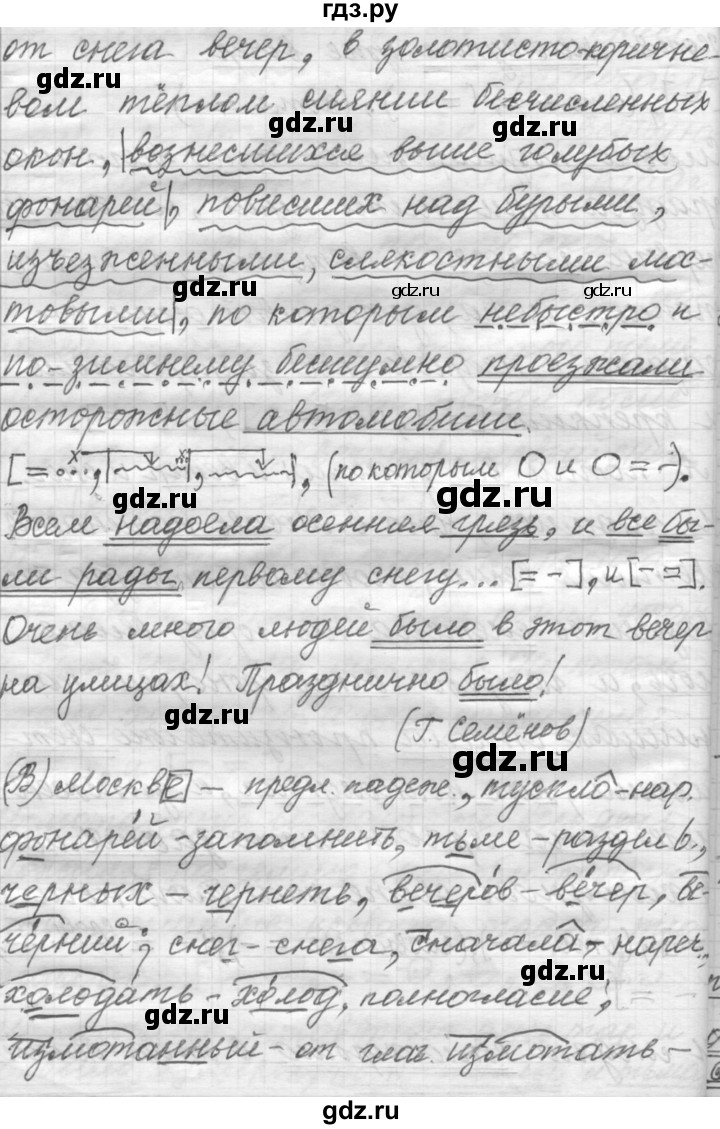 гдз.ру
от снега вечер, в золотисто-коричне-
gdz.ru
вом тёплом сиянии бесчисленных
gdz.ru gdz.ru
окон, |вознесшихся выше голубых
фонарей|, повисших над бурыми,
изъезженными, слякостными мос-
gdz.ru gdz.ru gdz.ru
товыми|, по которым небыстро и
по-зимнему бесшумно проезжали
осторожные автомобили.
[=..., |~~~|, ~~~|, (по которым О и О = -).
gdz.ru gdz.ru
Всем надоела осенняя грязь, и все бы-
ли рады первому снегу... [= -], и [- =].
Очень много людей было в этот вечер
на улицах! Празднично было!
gdz.ru
(Г. Семёнов)
gdz.ru
(В) Москве – предл. падеж., тускло-нар.
фонарей-запомнить, тьме-раздел ь.,
черных – чернеть, вечеров – вечер, ве-
черний; снег-снега, сначала, нареч.;
gdz.ru
холодать – холод, полногласие;
gdz.ru
измотанный – от глаг. измотать –
gdz.ru